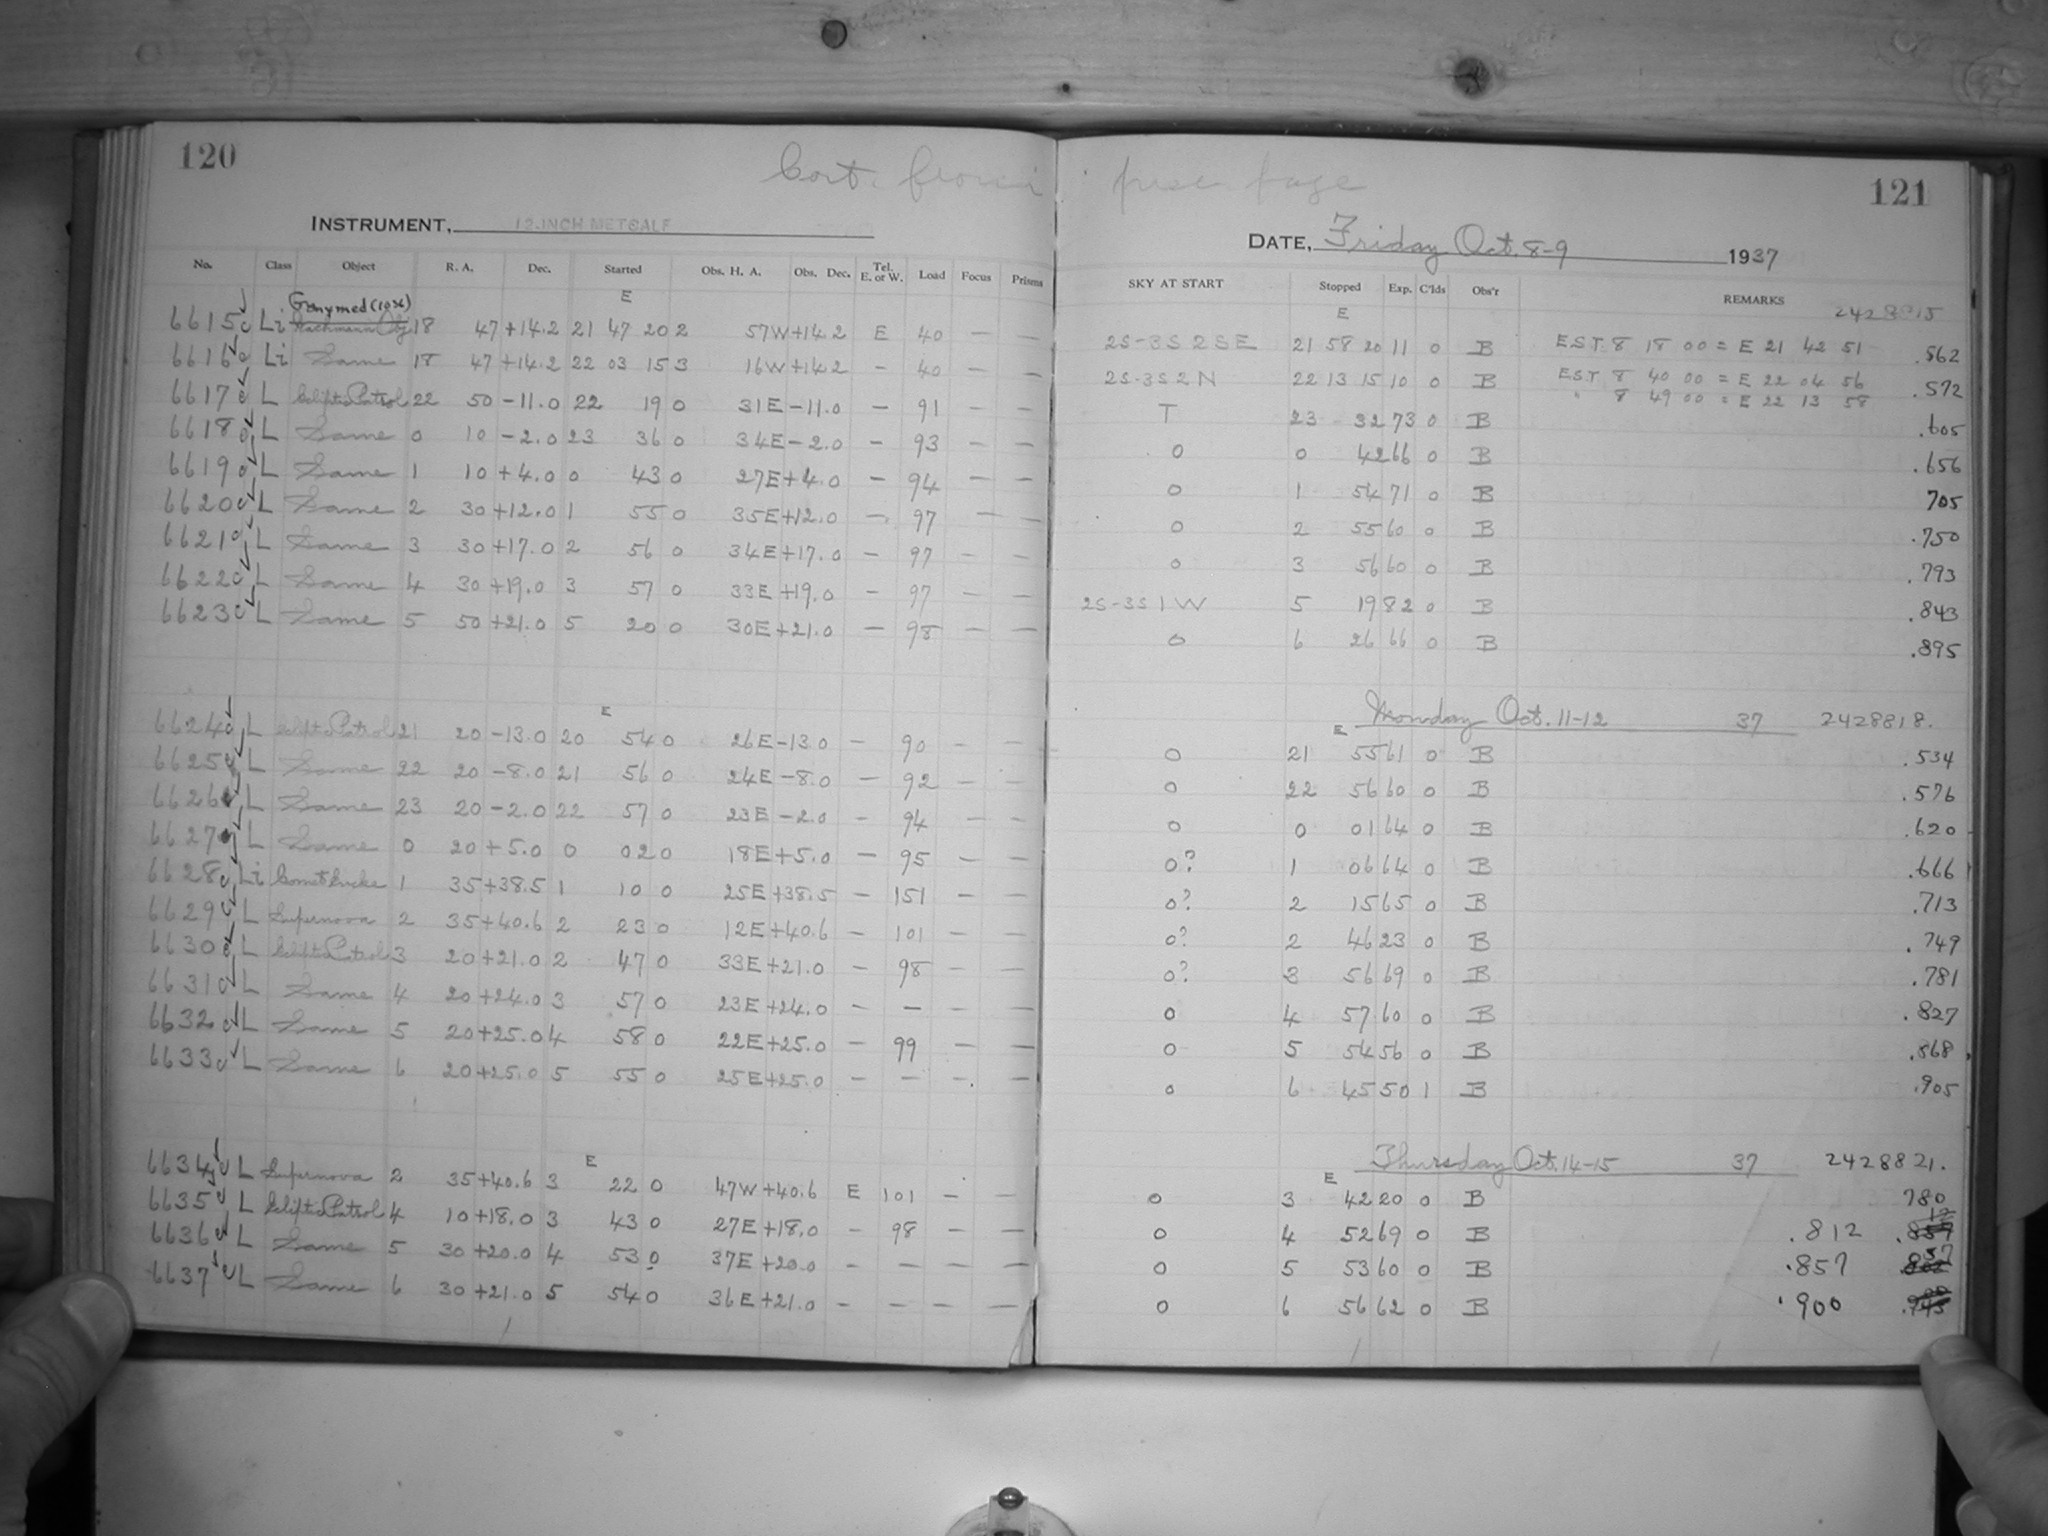 120
Cont. from
INSTRUMENT, 12-INCH METCALF
No. Class Object R. A. Dec. Started Obs. H. A. Obs. Dec. Tel. E. or W. Load Focus Prisms
E
Ganymed (10x)
6615 Li 18 47 +14.2 21 47 20 2 57W +14.2 E 40 — —
6616 Li Same 18 47 +14.2 22 03 15 3 16W +14.2 — 40 — —
6617 L Eclip Patrol 22 50 -11.0 22 19 0 31E -11.0 — 91 — —
6618 L Same 0 10 -2.0 23 36 0 34E -2.0 — 93 — —
6619 L Same 1 10 +4.0 0 43 0 27E +4.0 — 94 — —
6620 L Same 2 30 +12.0 1 55 0 35E +12.0 — 97 — —
6621 L Same 3 30 +17.0 2 56 0 34E +17.0 — 97 — —
6622 L Same 4 30 +19.0 3 57 0 33E +19.0 — 97 — —
6623 L Same 5 50 +21.0 5 20 0 30E +21.0 — 98 — —
E
6624 L Eclip Patrol 21 20 -13.0 20 54 0 26E -13.0 — 90 — —
6625 L Same 22 20 -8.0 21 56 0 24E -8.0 — 92 — —
6626 L Same 23 20 -2.0 22 57 0 23E -2.0 — 94 — —
6627 L Same 0 20 +5.0 0 02 0 18E +5.0 — 95 — —
6628 Li Comet Encke 1 35 +38.5 1 10 0 25E +38.5 — 151 — —
6629 L Supernova 2 35 +40.6 2 23 0 12E +40.6 — 101 — —
6630 L Eclip Patrol 3 20 +21.0 2 47 0 33E +21.0 — 98 — —
6631 L Same 4 20 +24.0 3 57 0 23E +24.0 — — — —
6632 L Same 5 20 +25.0 4 58 0 22E +25.0 — 99 — —
6633 L Same 6 20 +25.0 5 55 0 25E +25.0 — — — —
E
6634 L Supernova 2 35 +40.6 3 22 0 47W +40.6 E 101 — —
6635 L Eclip Patrol 4 10 +18.0 3 43 0 27E +18.0 — 98 — —
6636 L Same 5 30 +20.0 4 53 0 37E +20.0 — — — —
6637 L Same 6 30 +21.0 5 54 0 36E +21.0 — — — —
prec. page
121
DATE, Friday Oct. 8-9 1937
SKY AT START Stopped Exp. C'lds Obs'r REMARKS
E 2428815
2S-3S 2SE 21 58 20 11 0 B E.S.T. 8 18 00 = E 21 42 51 .562
2S-3S 2N 22 13 15 10 0 B E.S.T. 8 40 00 = E 22 04 56 .572
" 8 49 00 = E 22 13 58
T 23 32 73 0 B .605
0 0 42 66 0 B .656
0 1 54 71 0 B 705
0 2 55 60 0 B .750
0 3 56 60 0 B .793
2S-3S 1W 5 19 82 0 B .843
0 6 26 66 0 B .895
Monday Oct. 11-12 37 2428818.
E
0 21 55 61 0 B .534
0 22 56 60 0 B .576
0 0 01 64 0 B .620
0? 1 06 64 0 B .666
0? 2 15 65 0 B .713
0? 2 46 23 0 B .749
0? 3 56 69 0 B .781
0 4 57 60 0 B .827
0 5 54 56 0 B .868
0 6 45 50 1 B .905
Thursday Oct. 14-15 37 2428821.
E
0 3 42 20 0 B 780
0 4 52 69 0 B .812
0 5 53 60 0 B .857
0 6 56 62 0 B .900